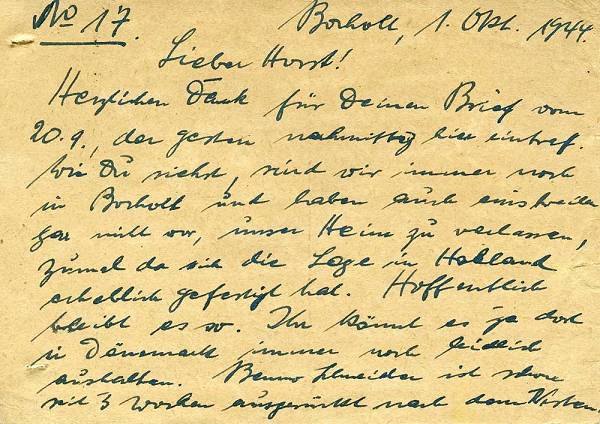 No 17.
Bocholt, 1. Okt. 1944.
Lieber Horst!
Herzlichen Dank für Deinen Brief vom
20.9., der gestern nachmittag hier eintraf.
Wie Du siehst, sind wir immer noch
in Bocholt und haben auch einstweilen
gar nicht vor, unser Heim zu verlassen,
zumal da sich die Lage in Holland
erheblich gefestigt hat. Hoffentlich
bleibt es so. Ihr könnt es ja dort
in Dänemark immer noch leidlich
aushalten. Benno Schneider ist schon
seit 3 Wochen ausgerückt nach dem Westen.